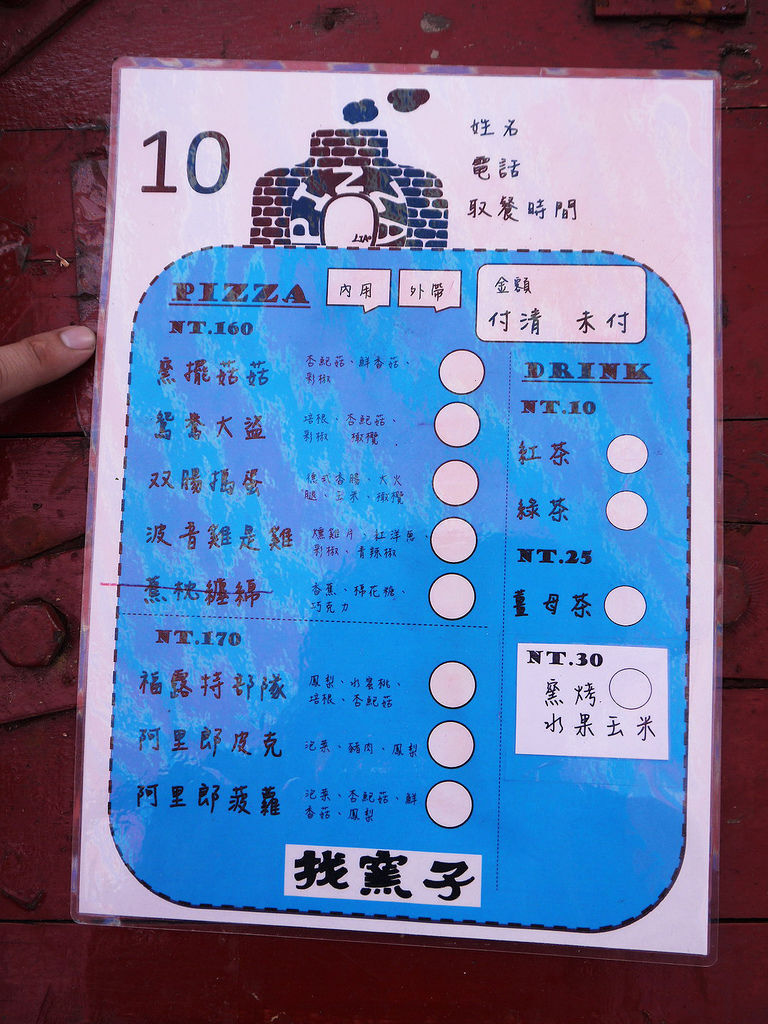 10
PINZA
LIAO
姓名
電話
取餐時間
PIZZA
內用
外帶
金額
付清 未付
NT.160
窯擺菇菇
杏鮑菇、鮮香菇、
彩椒
鴛鴦大盜
培根、杏鮑菇、
彩椒 橄欖
双腸搗蛋
德式香腸、大火
腿、玉米、橄欖
波音雞是雞
燻雞片、紅洋蔥、
彩椒、青辣椒
蕉枕纏綿
香蕉、棉花糖、
巧克力
NT.170
福露特部隊
鳳梨、水蜜桃、
培根、杏鮑菇
阿里郎皮克
泡菜、豬肉、鳳梨
阿里郎菠蘿
泡菜、杏鮑菇、鮮
香菇、鳳梨
DRINK
NT.10
紅茶
綠茶
NT.25
薑母茶
NT.30
窯烤
水果玉米
找窯子